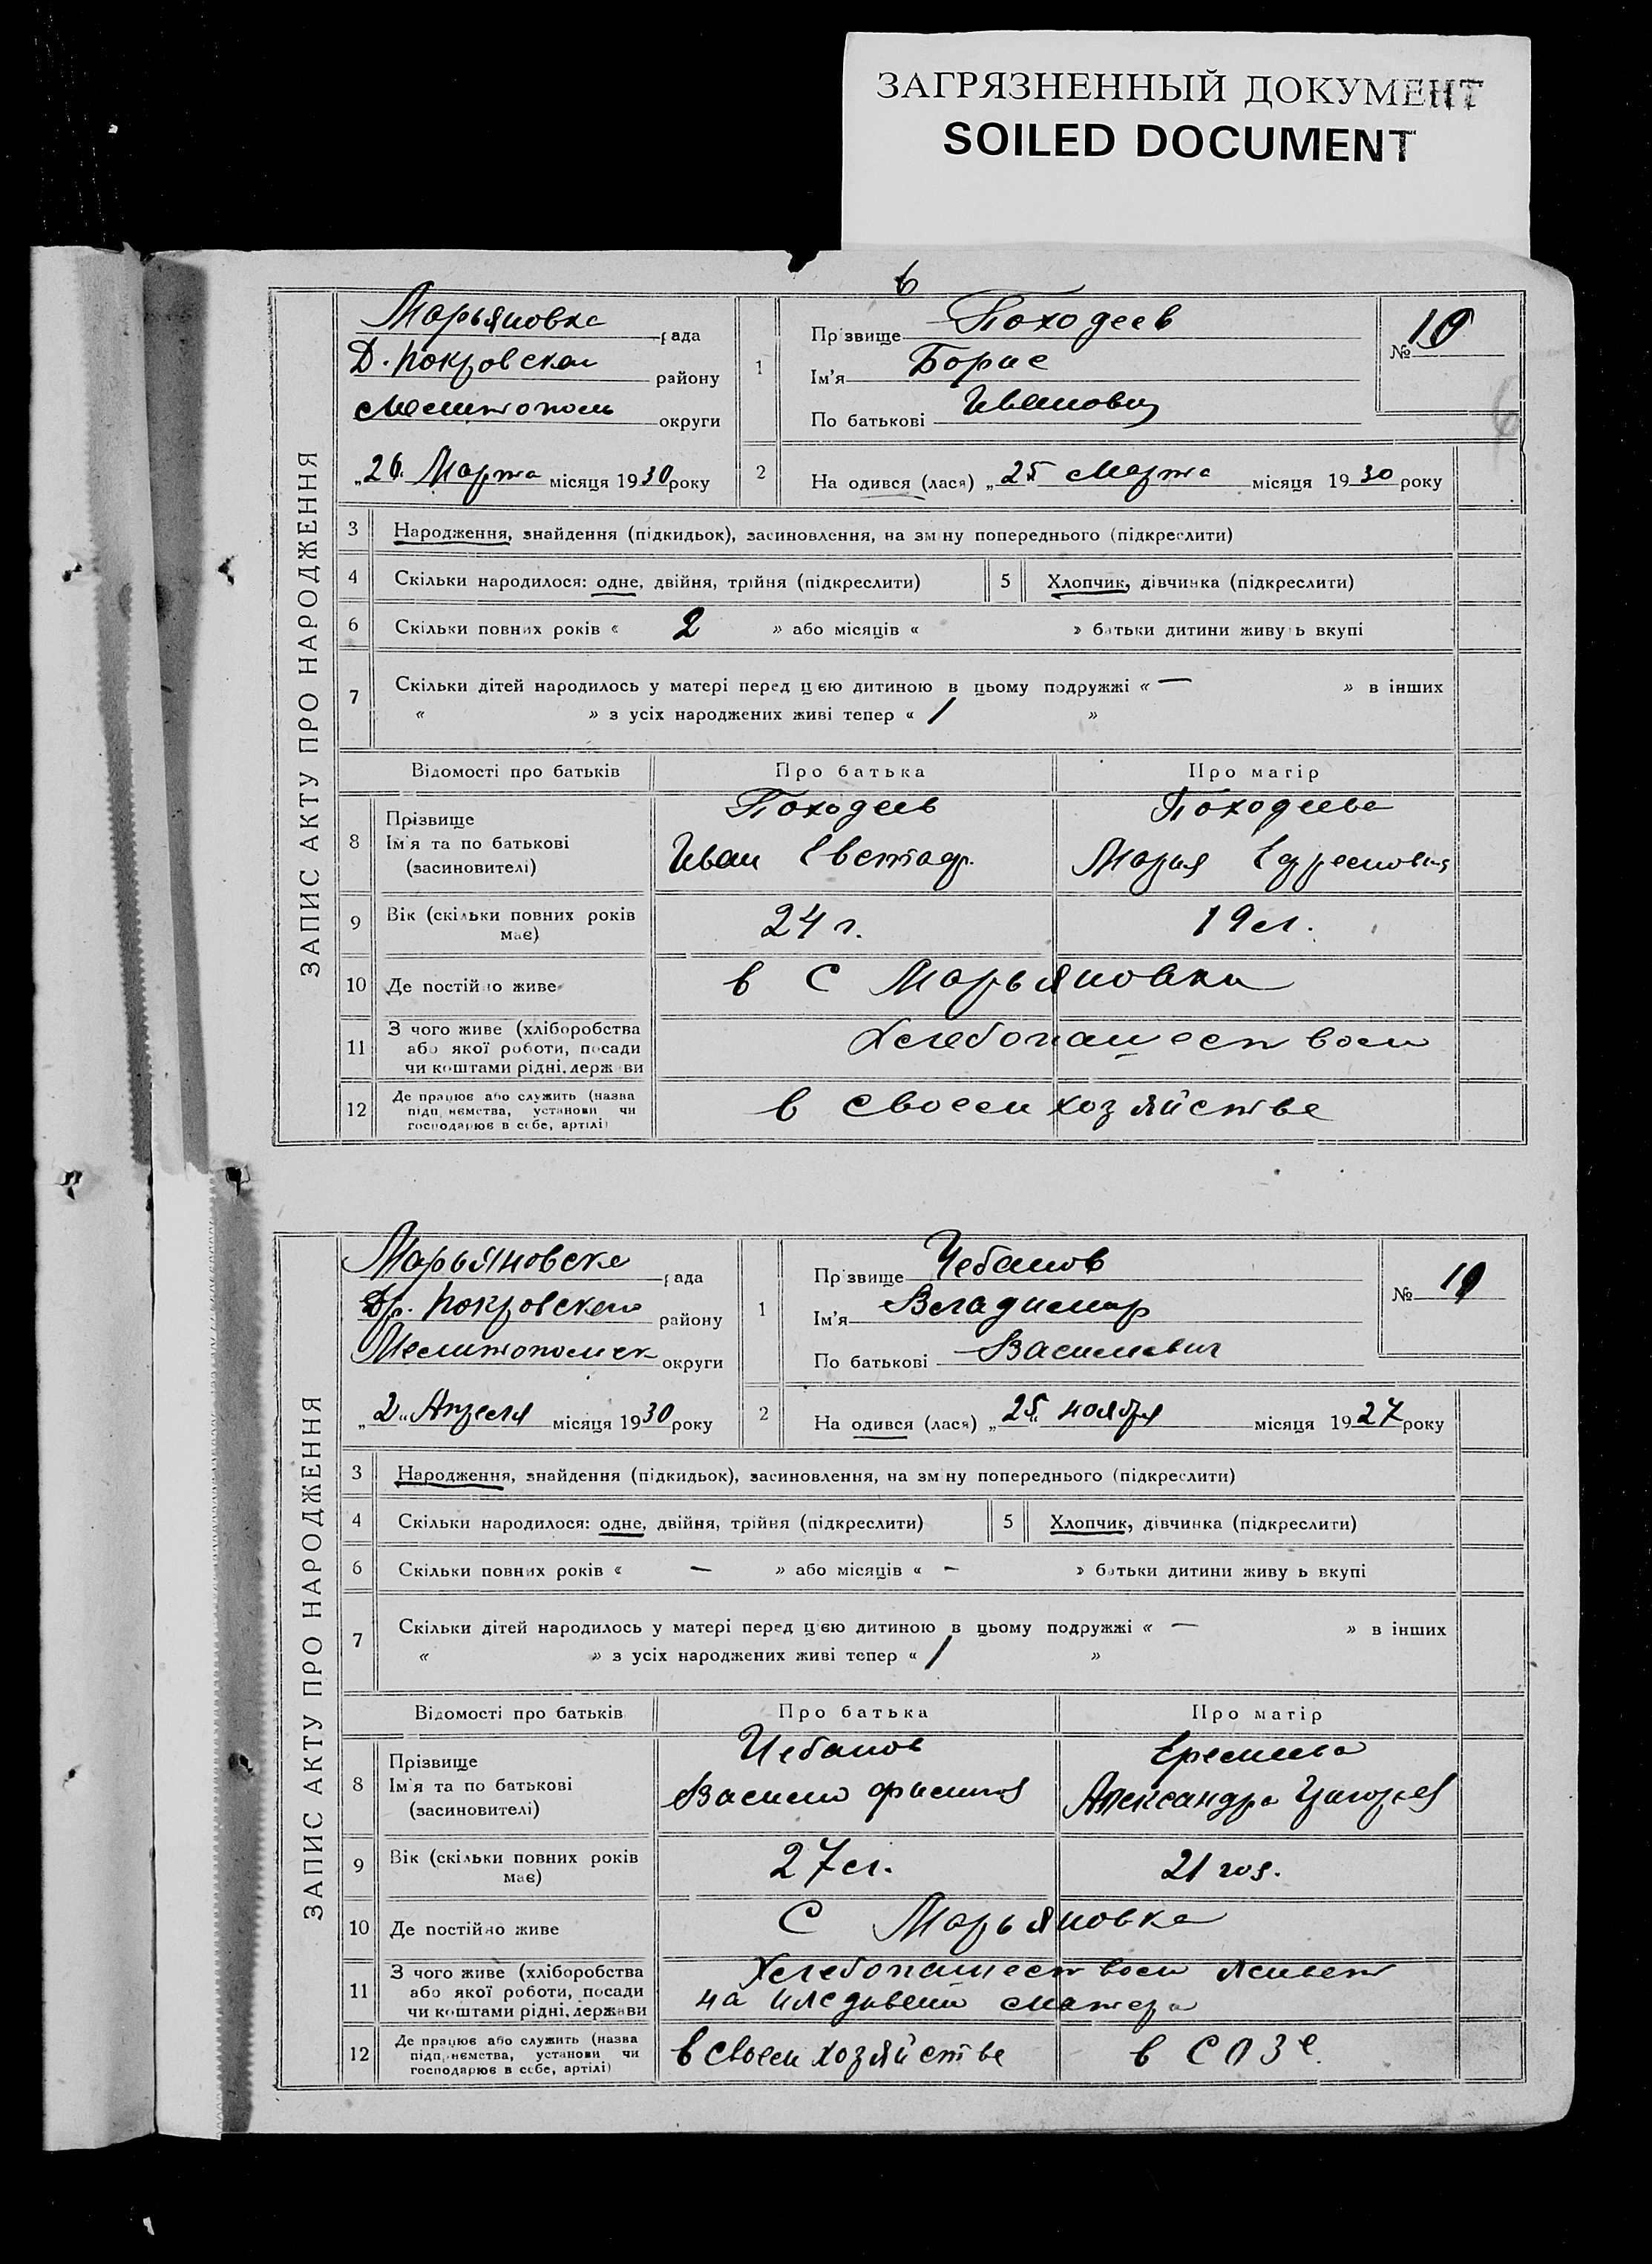 ЗАГРЯЗНЕННЫЙ ДОКУМЕНТ
SOILED DOCUMENT
6
ЗАПИС АКТУ ПРО НАРОДЖЕННЯ
Марьяновка рада
Д. Покровском району
Мелитополь округи
„26. Марта місяця 1930 року
1
Прізвище Походеев
Ім'я Борис
По батькові Иванович
№ 10
2
На одився (лася) „25 Марта місяця 1930 року
3 Народження, знайдення (підкидьок), засиновлення, на зміну попереднього (підкреслити)
4 Скільки народилося: одне, двійня, трійня (підкреслити) 5 Хлопчик, дівчинка (підкреслити)
6 Скільки повних років « 2 » або місяців « » батьки дитини живуть вкупі
7 Скільки дітей народилось у матері перед цією дитиною в цьому подружжі « — » в інших
« » з усіх народжених живі тепер « 1 »
Відомості про батьків Про батька Про матір
8 Прізвище
Ім'я та по батькові
(засиновителі)
Походеев
Иван Евстаф.
Походеева
Мария
9 Вік (скільки повних років має) 24 г. 19 л.
10 Де постійно живе в с Марьяновки
11 З чого живе (хліборобства
або якої роботи, посади
чи коштами рідні, держави
Хлебопашеством
12 Де працює або служить (назва
підприємства, установи чи
господарює в себе, артілі)
в своем хозяйстве
ЗАПИС АКТУ ПРО НАРОДЖЕННЯ
Марьяновска рада
Др. Покровского району
Мелитопольск округи
„2„ Апреля місяця 1930 року
1
Прізвище Чебанов
Ім'я Владимир
По батькові Василевич
№
2
На одився (лася) „25„ ноября місяця 1927 року
3 Народження, знайдення (підкидьок), засиновлення, на зміну попереднього (підкреслити)
4 Скільки народилося: одне, двійня, трійня (підкреслити) 5 Хлопчик, дівчинка (підкреслити)
6 Скільки повних років « — » або місяців « — » батьки дитини живу ь вкупі
7 Скільки дітей народилось у матері перед цією дитиною в цьому подружжі « — » в інших
« » з усіх народжених живі тепер « 1 »
Відомості про батьків Про батька Про матір
8 Прізвище
Ім'я та по батькові
(засиновителі)
Чебанов
Василий
Еремеева
Александра
9 Вік (скільки повних років має) 27 л. 21 год.
10 Де постійно живе С Марьяновка
11 З чого живе (хліборобства
або якої роботи, посади
чи коштами рідні, держави
Хлебопашеством живет
на иждивении матера
12 Де працює або служить (назва
підприємства, установи чи
господарює в себе, артілі)
в своем хозяйстве
в СОЗе